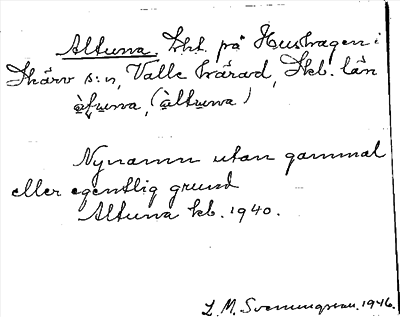 Altuna, Lht. på Hushagen i
Skärv s:n, Valle härad, Skb. län
àfṷna, (àltṷna)
Nynamn utan gammal
eller egentlig grund
Altuna kb. 1940.
L. M. Svenungsson. 1946.